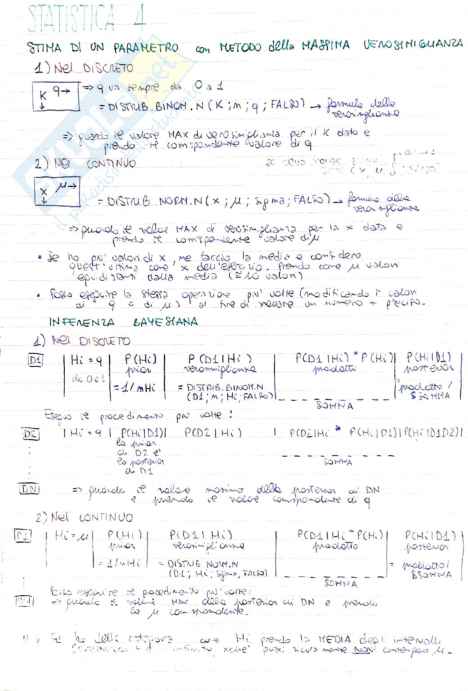 STATISTICA 4
STIMA DI UN PARAMETRO con METODO della MASSIMA VEROSIMIGLIANZA
1) Nel DISCRETO
K q → ⇒ q va sempre da 0 a 1
= DISTRIB.BINOM.N (K; m; q; FALSO) → formula della verosimiglianza
⇒ guardo il valore MAX di verosimiglianza per il K dato e
prendo il corrispondente valore di q
2) Nel CONTINUO
x μ →
= DISTRIB.NORM.N (x; μ; sigma; FALSO) → formula della verosimiglianza
⇒ guardo il valore MAX di verosimiglianza per la x data e
prendo il corrispondente valore di μ
• Se ho più valori di x, ne faccio la media e considero
quest'ultima come x dell'esercizio. Prendo come μ valori
equidistanti dalla media (≥ 10 valori)
• Posso eseguire la stessa operazione più volte (modificando i valori
di q o di μ) al fine di trovare un numero + preciso.
INFERENZA BAYESIANA
1) Nel DISCRETO
D1 Hi = q P(Hi) P(D1|Hi) P(D1|Hi) * P(Hi) P(Hi|D1)
da 0 a 1 prior verosimiglianza prodotti posterior
= 1/mHi = DISTRIB.BINOM.N prodotto/
(D1; m; Hi; FALSO) SOMMA SOMMA
Eseguo il procedimento più volte:
D2 Hi = q P(Hi|D1) P(D2|Hi) P(D2|Hi * P(Hi|D1) P(Hi|D1D2)
la prior
di D2 è
la posterior
di D1 SOMMA
DN ⇒ guardo il valore massimo della posterior di DN
e prendo il valore corrispondente di q
2) Nel CONTINUO
Hi = μ P(Hi) P(D1|Hi) P(D1|Hi * P(Hi) P(Hi|D1)
prior verosimiglianza prodotto posterior
= 1/mHi = DISTRIB.NORM.N = prodotti/
(D1; Hi; sigma; FALSO) SOMMA SOMMA
procedimento più volte:
⇒ guardo il valore MAX della posterior di DN e prendo
la μ corrispondente.
Se ho delle Hi prendo la MEDIA degli intervalli
NON μ.